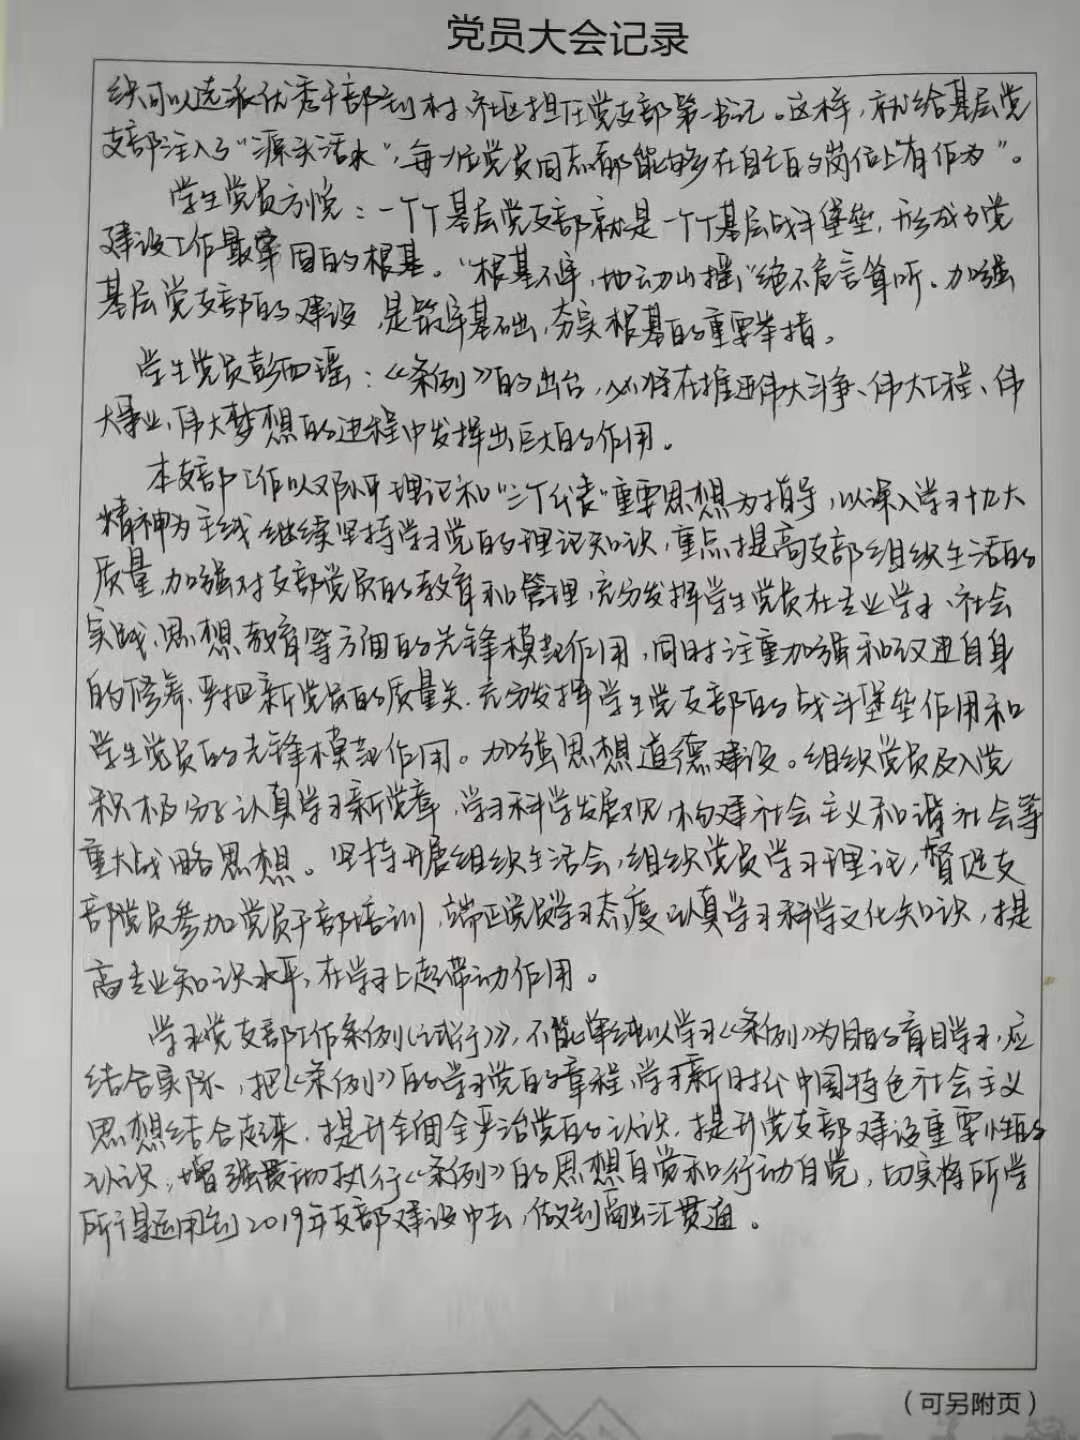 党员大会记录
织可以选派优秀干部到村、社区担任党支部第一书记。这样，就给基层党
支部注入了“源头活水”，每一位党员同志都能够在自己的岗位上“有作为”。
学生党员方悦：一个个基层党支部就是一个个基层战斗堡垒，形成为党
建设工作最牢固的根基。“根基不牢，地动山摇”绝不危言耸听。加强
基层党支部的建设，是筑牢基础，夯实根基的重要举措。
学生党员彭四瑶：《条例》的出台，必将在推进伟大斗争、伟大工程、伟
大事业、伟大梦想的进程中发挥出巨大的作用。
本支部工作以邓小平理论和“三个代表”重要思想为指导，以深入学习十九大
精神为主线，继续坚持学习党的理论知识，重点提高支部组织生活的
质量，加强对支部党员的教育和管理，充分发挥学生党员在专业学习、社会
实践、思想教育等方面的先锋模范作用，同时注重加强和改进自身
的修养，严把新党员的质量关，充分发挥学生党支部的战斗堡垒作用和
学生党员的先锋模范作用。加强思想道德建设。组织党员及入党
积极分子认真学习新党章，学习科学发展观，构建社会主义和谐社会等
重大战略思想。坚持开展组织生活会，组织党员学习理论，督促支
部党员参加党员干部培训，端正党员学习态度，认真学习科学文化知识，提
高专业知识水平，在学习上起带动作用。
学习党支部工作条例（试行）》，不能单纯以学习《条例》为目的盲目学习，应
结合实际，把《条例》的学习党的章程，学习新时代中国特色社会主义
思想结合起来，提升全面全严治党的认识，提升党支部建设重要性的
认识，增强贯彻执行《条例》的思想自觉和行动自觉，切实将所学
所得运用到2019年支部建设中去，做到融汇贯通。
（可另附页）